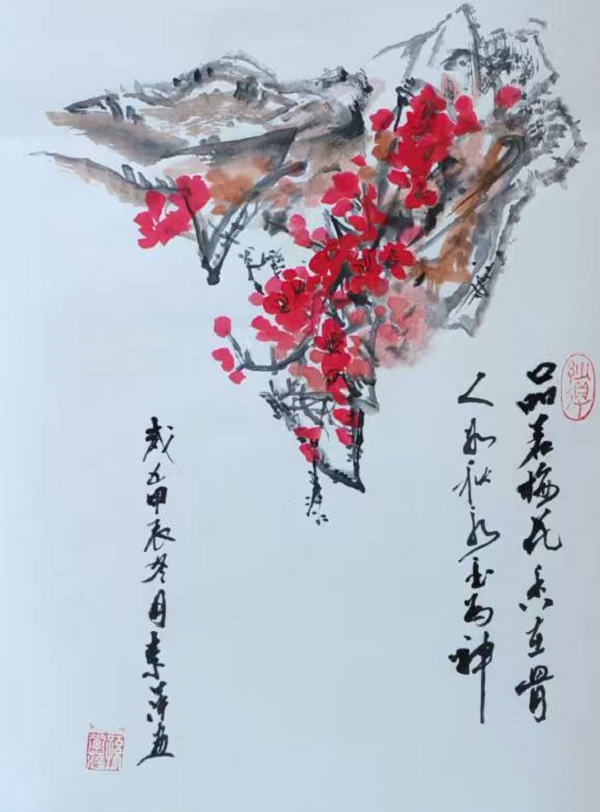 品若梅花香在骨
人如秋水玉为神
歲在甲辰冬月素萍画